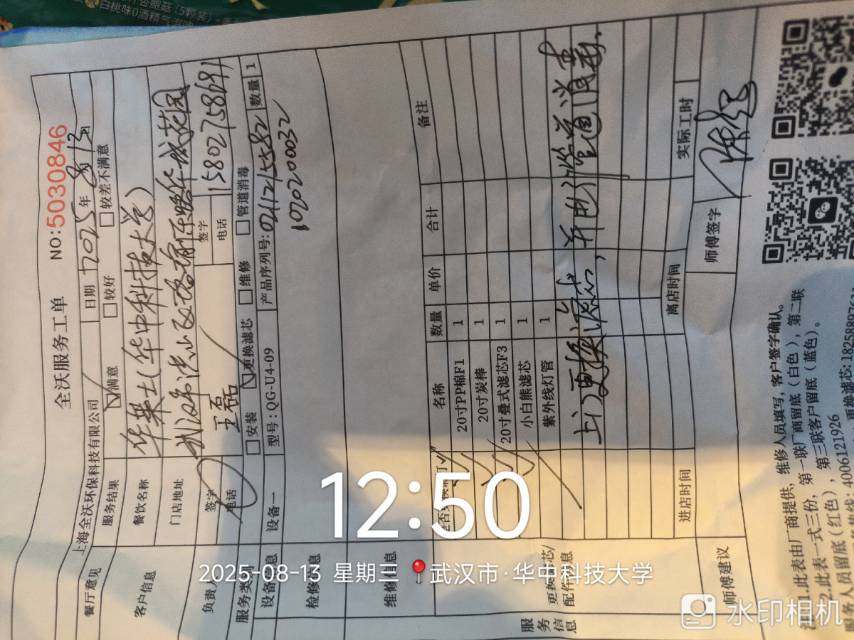 全沃服务工单
NO:5030846
上海全沃环保科技有限公司
日期 2025年8.13
餐厅意见 服务结果 满意 较好 较差不满意
客户信息 餐饮名称 华莱士(华中科技大学)
门店地址 武汉市洪山区珞喻路华城花园
负责 签字 王磊 签字
电话 电话 15802758691
服务类 安装 更换滤芯 维修 管道消毒
设备信息 设备一 型号:QG-U4-09 产品序列号: 数量 1
1020200032
检修信息
维修信息
名称 数量 单价 合计 备注
20寸PP棉F1 1
20寸炭棒 1
20寸叠式滤芯F3 1
小白熊滤芯 1
紫外线灯管 1
配件信息
上门更换滤芯,并进行管道消毒.
服务信息
进店时间 离店时间 实际工时
师傅建议 师傅签字
1.此表由厂商提供,维修人员填写,客户签字确认。
2.此表一式三份,第一联厂商留底(白色),第二联
服务人员留底(红色),第三联客户留底(蓝色)。
4006121926
12:50
2025-08-13 星期三 武汉市·华中科技大学
水印相机